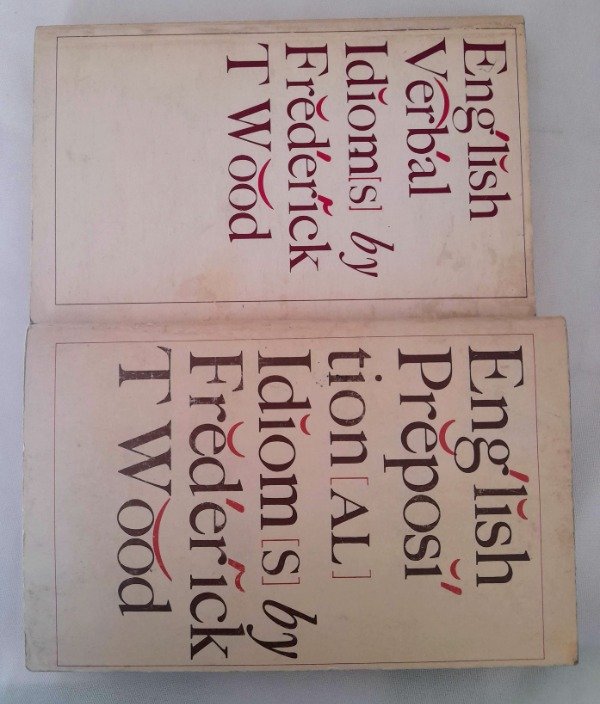 Eng'lĭsh
Ve͡rb'al
Idĭom[S] by
Frĕd'erĭck
T Wo͝od
Eng'lĭsh
Prĕposĭ'
tion[AL]
Idĭom[S] by
Frĕd'erĭck
T Wo͝od